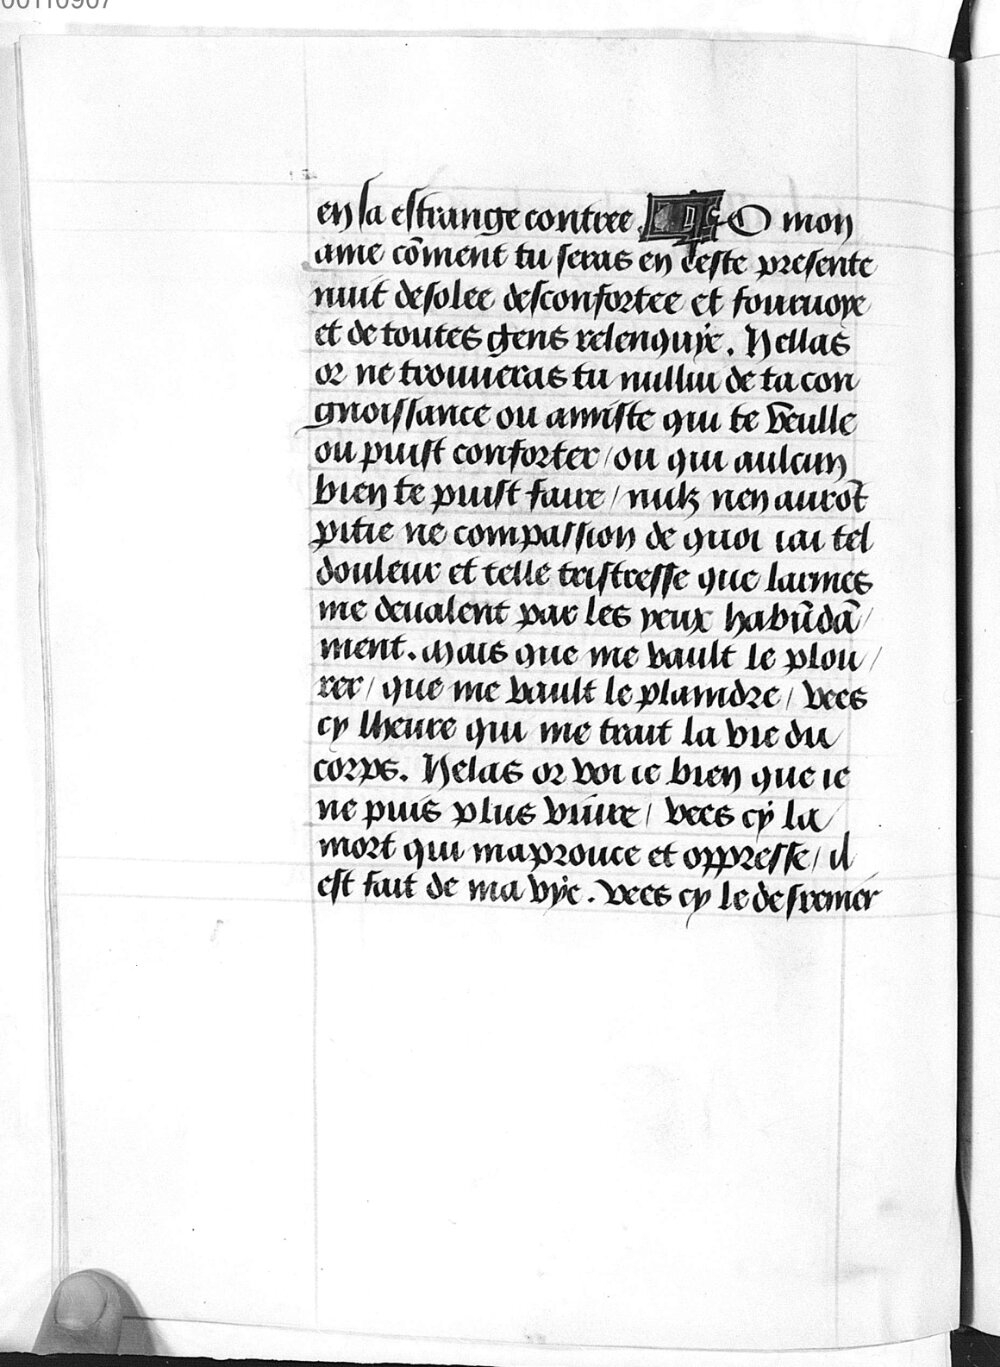 00110907
en sa estrange contree. O mon
ame cōment tu seras en ceste presente
nuit desolee desconfortee et fouruoye
et de toutes gens relenquye. Hellas
or ne trouueras tu nulluu de ta con
gnoissance ou amiste qui te veulle
ou puist conforter / ou qui aulcun
bien te puist faire / nulz nen aurōt
pitie ne compassion de quoi iai tel
douleur et telle tristresse que larmes
me deualent par les yeux habūdā/
ment. Mais que me vault le plou/
rer / que me vault le plaindre / vees
cy lheure qui me trait la vie du
corps. Helas or voi ie bien que ie
ne puis plus viure / vees cy la
mort qui maprouce et oppresse / il
est fait de ma vye. vees cy le desremier